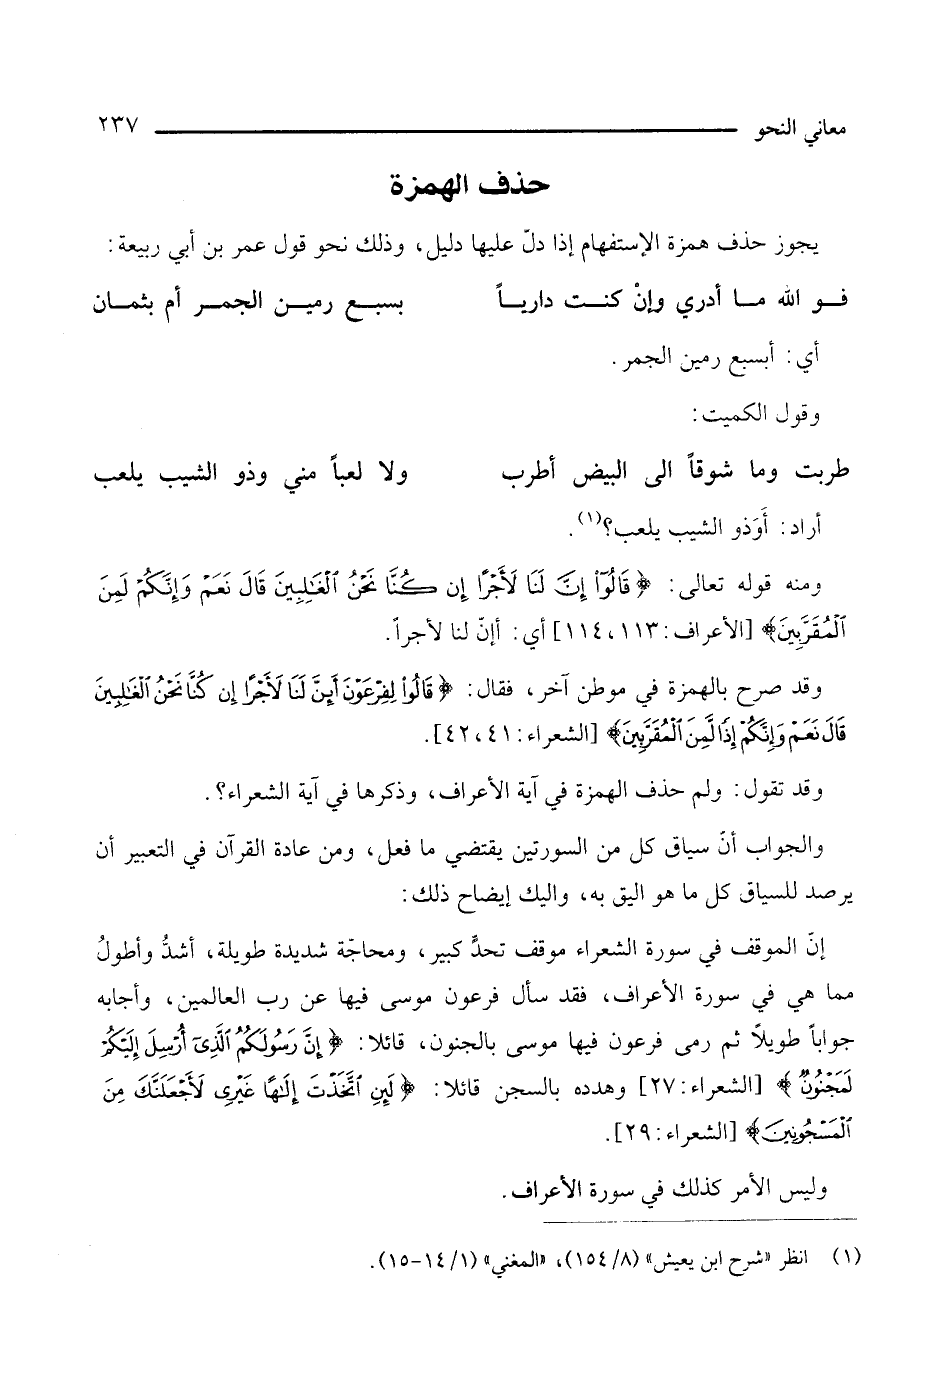 معاني النحو ٢٣٧
حذف الهمزة
يجوز حذف همزة الإستفهام إذا دلّ عليها دليل، وذلك نحو قول عمر بن أبي ربيعة:
فو الله ما أدري وإنْ كنت دارياً بسبع رمين الجمر أم بثمان
أي: أبسبع رمين الجمر.
وقول الكميت:
طربت وما شوقاً الى البيض أطرب ولا لعباً مني وذو الشيب يلعب
أراد: أَوَذو الشيب يلعب؟(١).
ومنه قوله تعالى: ﴿قَالُوٓاْ إِنَّ لَنَا لَأَجْرًا إِن كُنَّا نَحْنُ ٱلْغَٰلِبِينَ قَالَ نَعَمْ وَإِنَّكُمْ لَمِنَ
ٱلْمُقَرَّبِينَ﴾ [الأعراف: ١١٣، ١١٤] أي: أإنّ لنا لأجراً.
وقد صرح بالهمزة في موطن آخر، فقال: ﴿قَالُواْ لِفِرْعَوْنَ أَئِنَّ لَنَا لَأَجْرًا إِن كُنَّا نَحْنُ ٱلْغَٰلِبِينَ
قَالَ نَعَمْ وَإِنَّكُمْ إِذًا لَّمِنَ ٱلْمُقَرَّبِينَ﴾ [الشعراء: ٤١، ٤٢].
وقد تقول: ولم حذف الهمزة في آية الأعراف، وذكرها في آية الشعراء؟.
والجواب أنّ سياق كل من السورتين يقتضي ما فعل، ومن عادة القرآن في التعبير أن
يرصد للسياق كل ما هو اليق به، واليك إيضاح ذلك:
إنّ الموقف في سورة الشعراء موقف تحدٍّ كبير، ومحاجّة شديدة طويلة، أشدُّ وأطولُ
مما هي في سورة الأعراف، فقد سأل فرعون موسى فيها عن رب العالمين، وأجابه
جواباً طويلاً ثم رمى فرعون فيها موسى بالجنون، قائلا: ﴿إِنَّ رَسُولَكُمُ ٱلَّذِىٓ أُرْسِلَ إِلَيْكُمْ
لَمَجْنُونٌ﴾ [الشعراء: ٢٧] وهدده بالسجن قائلا: ﴿لَئِنِ ٱتَّخَذْتَ إِلَٰهًا غَيْرِى لَأَجْعَلَنَّكَ مِنَ
ٱلْمَسْجُونِينَ﴾ [الشعراء: ٢٩].
وليس الأمر كذلك في سورة الأعراف.
(١) انظر «شرح ابن يعيش» (٨/ ١٥٤)، «المغني» (١/ ١٤-١٥).